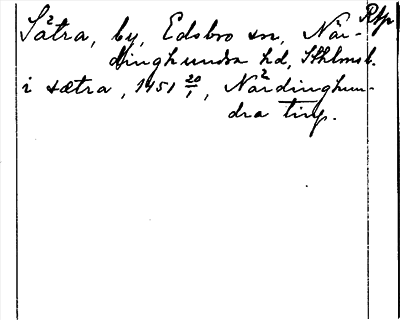 Såtra, by, Edsbro sn, När-
dinghundra hd, Sthlms l.
i sætra, 1451 20/1, Närdinghun-
dra ting.